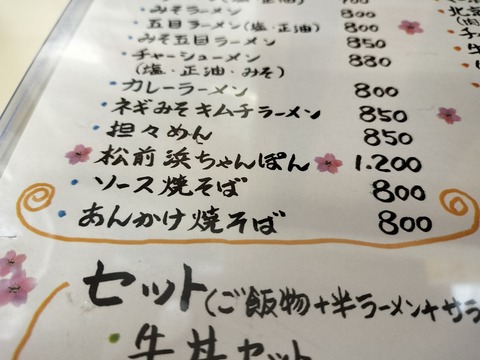 (塩・正油) 700
みそラーメン 800
五目ラーメン(塩・正油) 800
みそ五目ラーメン 850
チャーシューメン 880
(塩・正油・みそ)
カレーラーメン 800
ネギみそキムチラーメン 850
担々めん 850
松前浜ちゃんぽん 1.200
ソース焼そば 800
あんかけ焼そば 800
セット(ご飯物+半ラーメン+サラ
牛丼セット